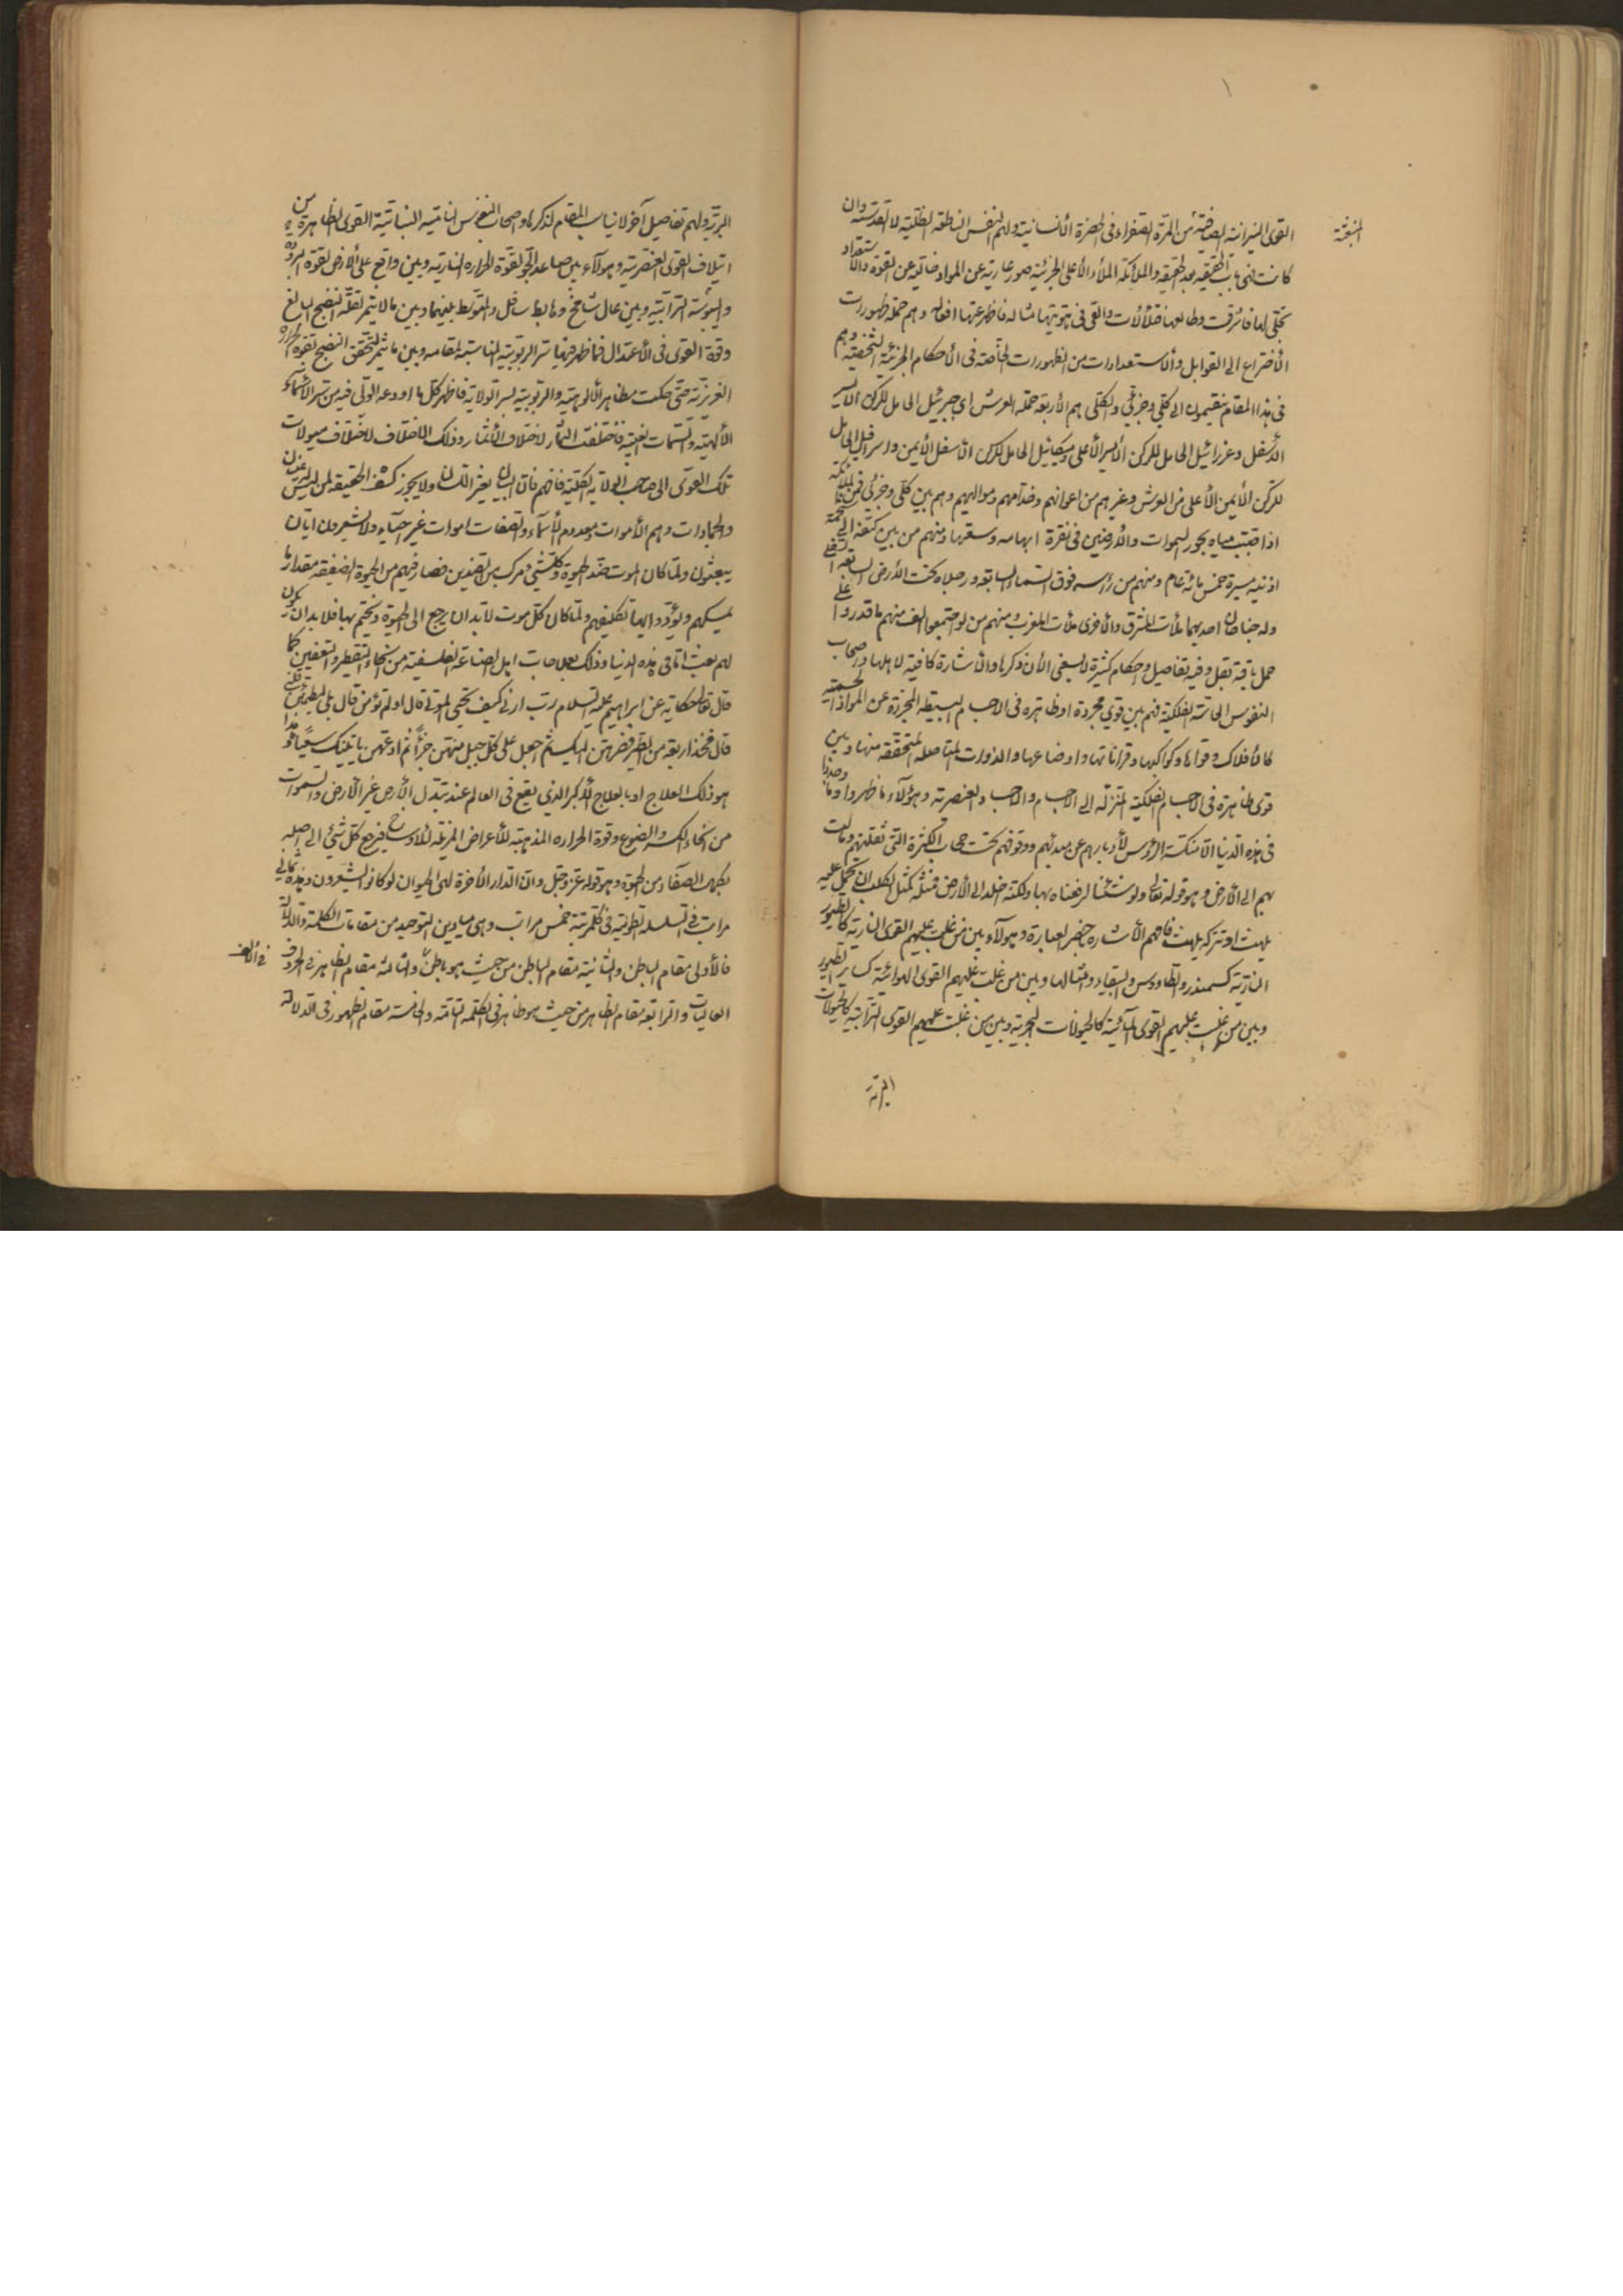 المنبعثة
القوى النيرانية الصافية من المرة الصفراء في الحضرة الأنسانية ولهم النفس الناطقة الظلية لا القدسية وان
كانت هي باب الحقيقة بعد الحقيقة والملائكة الملأ الأعلى الجزئية صور عارية عن المواد خالية عن القوة والاستعداد
تجلى لها فاشرقت وطالعها فتلألأت والقى في هويتها مثاله فاظهر عنها افعاله وهم حملة ظهورات
الأختراع الى القوابل والأستعدادات من الظهورات الخاصة في الأحكام الجزئية الشخصية وهم
في هذا المقام ينقسمون الى كلي وجزئي والكلي هم الأربعة حملة العرش اي جبرئيل الحامل للركن الأيسر
الأسفل وعزرائيل الحامل للركن الأيسر الأعلى وميكائيل الحامل للركن الأسفل الأيمن واسرافيل الحامل
للركن الأيمن الأعلى من العرش وغيرهم من اعوانهم وخدامهم ومواليهم وهم بين كلي وجزئي فمن الملائكة
اذا صبت مياه بحور السموات والأرضين في نقرة ابهامه وسعتها ومنهم من بين كتفه الى شحمة
اذنيه مسيرة خمس مائة عام ومنهم من رأسه فوق السماء السابعة ورجلاه تحت الأرض السابعة السفلى
وله جناحان احديهما ملأت المشرق والأخرى ملأت المغرب ومنهم من لو اجتمعوا الف منهم ما قدروا على
حمل باقة بقل وفيه تفاصيل واحكام كثيرة لا يسعني الأن ذكرها والأشارة كافية لاهلها واصحاب
النفوس الحاسة الفلكية فهم بين قوى مجردة او ظاهرة في الاجسام البسيطة المجردة عن المواد الجسمية
كالأفلاك وقواها وكواكبها وقراناتها واوضاعها والدورات المتأصلة المتحققة منها وبين
قوى ظاهرة في الاجسام الفلكية المتنزلة الى الاجسام والاجساد العنصرية وهؤلاء ما ظهروا وما وجدوا
في هذه الدنيا الا منكسة الرؤس لأدبارهم عن مبدئهم ووقوفهم تحت حجاب الكثرة التي ثقلتهم ومالت
بهم الى الأرض وهو قوله تعالى ولو شئنا لرفعناه بها ولكنه اخلد الى الأرض فمثله كمثل الكلب ان تحمل عليه
يلهث او تتركه يلهث فافهم الأشارة بأخصر العبارة وهؤلاء بين من غلبت عليهم القوى النارية كالطيور
النارية كسمندر والطاووس والببغاء وامثالها وبين من غلبت عليهم القوى الهوائية كساير الطيور
وبين من غلبت عليهم القوى المائية كالحيوانات البحرية وبين من غلبت عليهم القوى الترابية كالحيوانات
البرية
البرية ولهم تفاصيل آخر لا يناسب المقام لذكرها واصحاب النفوس النامية النباتية القوى الظاهرة من
ايتلاف القوى العنصرية وهؤلاء بين صاعد الى الجو لقوة الحرارة النارية وبين واقع على الأرض لقوة البرودة
واليبوسة الترابية وبين عال شامخ وهابط سافل والمتوسط بينهما وبين ما لا يثمر لقلة النضج البالغ
وقوة القوى في الأعتدال فما ظهر فيها سر الربوبية المناسبة لمقامه وبين ما يثمر لتحقق النضج لقوة الحرارة
الغريزية حتى حكت مظاهر الألوهية والربوبية لسر الولاية فاظهر كل ما اودعه الولي فيه من سر الأسماء
الألهية والسمات الغيبية فاختلفت الثمار لاختلاف الأثمار وذلك الاختلاف لاختلاف ميولات
تلك القوى الى صاحب الولاية الكلية فافهم فان البيان يغير اللسان ولا يجوز كشف الحقيقة لمن ليس له عينان
والجمادات وهم الأموات بعدم الأسماء والصفات اموات غير احياء ولا يشعرون ايان
يبعثون ولما كان الموت ضد الحيوة وكلشيئ مركب من الضدين فصار فيهم من الحيوة الضعيفة مقدار ما
يمسكهم ويؤدوا بها تكليفهم ولما كان كل موت لا بد ان يرجع الى الحيوة ويختم بها فلا بد ان يكون
لهم بعث اما في هذه الدنيا وذلك بعلاجات اهل الصناعة الفلسفية من انحاء التقطير والتعفين كما
قال تعالى حكاية عن ابراهيم عليه السلام رب ارني كيف تحيي الموتى قال اولم تؤمن قال بلى ليطمئن قلبي
قال فخذ اربعة من الطير فصرهن اليك ثم اجعل على كل جبل منهن جزأ ثم ادعهن يأتينك سعيا هذا
هو ذلك العلاج او بالعلاج الأكبر الذي يقع في العالم عند تبدل الأرض غير الأرض والسموات
من انحاء الكسر والصوغ وقوة الحرارة المذهبة للأعراض المزيلة للأوساخ فيرجع كل شيئ الى اصله
بكمال الصفاء من الحيوة وهو قوله عز وجل وان الدار الأخرة لهي الحيوان لو كانوا يشعرون وهذه ثماني
مراتب في السلسلة الطولية في كل مرتبة خمس مراتب وهي ميادين التوحيد من مقامات الكلمة والدلالة
فالأولى مقام الباطن والثانية مقام الباطن من حيث هو باطن والثالثة مقام الظاهر في الحروف
العاليات والرابعة مقام الظاهر من حيث هو ظاهر في الكلمة التامة والخامسة مقام الظهور في الدلالة